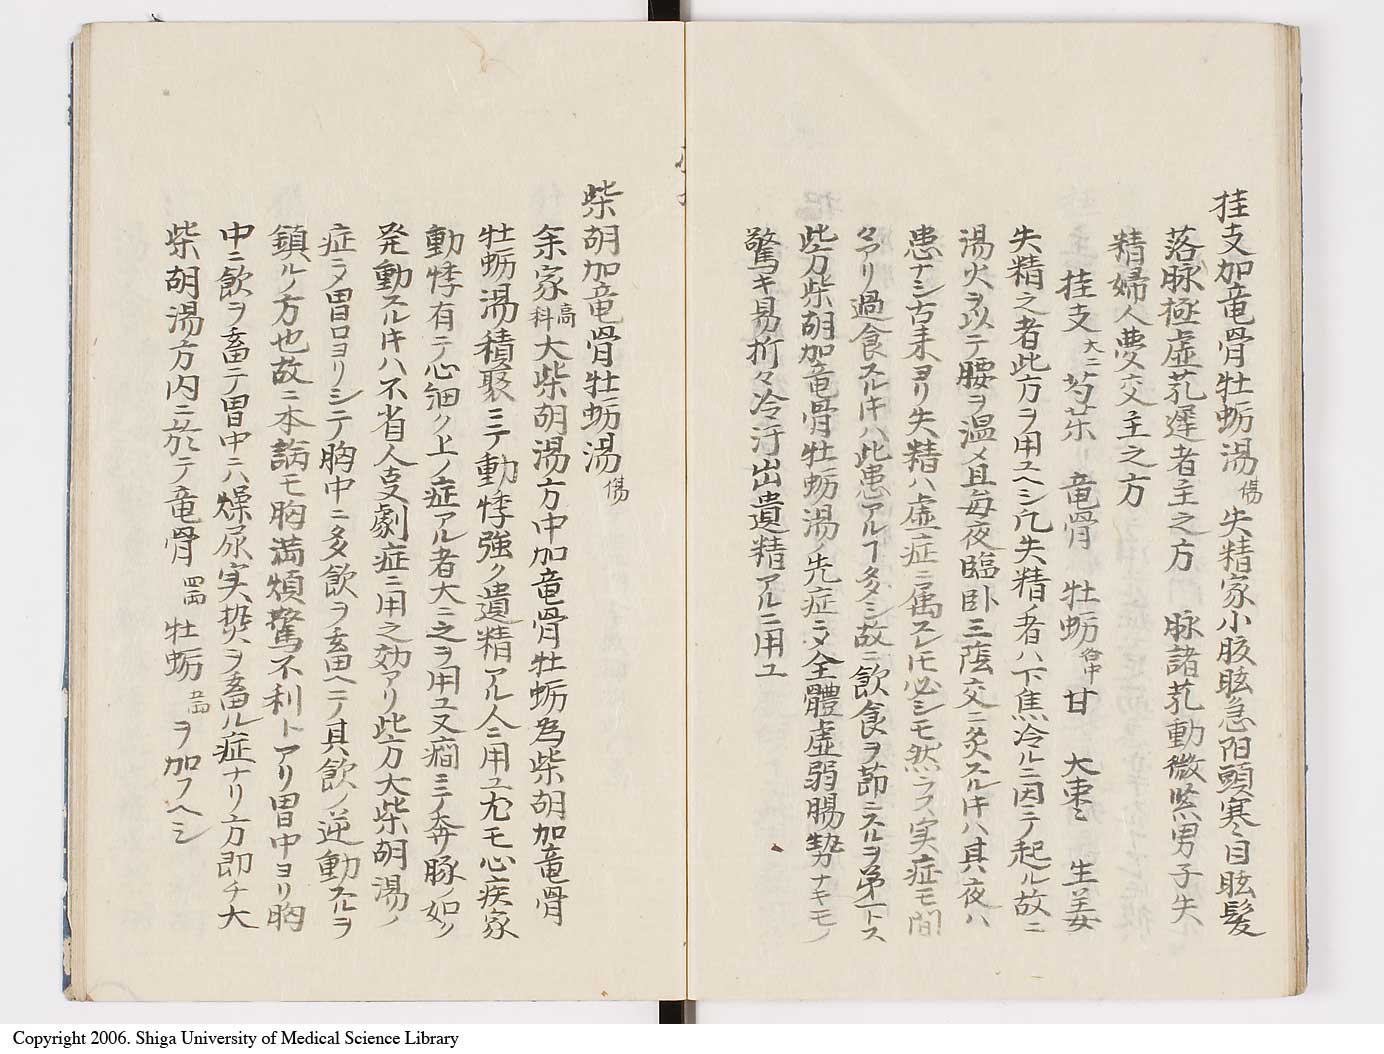 桂支加竜骨牡蛎湯 傷 失精家小腹眩急陌頭寒〻目眩髪
落脉極虚芤遲者主之方 脉諸芤動微緊男子失
精婦人夢交主之方
桂支大二 芍薬リ 竜骨 牡蛎各中 甘 大棗〻 生姜
失精之者此方ヲ用ユヘシ凢失精ノ者ハ下焦冷ルニ因テ起ル故ニ
湯火ヲ以テ腰ヲ温メ且毎夜臨卧三陰交ニ灸スルキハ其夜ハ
患ナシ古来ヨリ失精ハ虚症ニ属スレ𪜈必シモ然ラス実症モ間
々アリ過食スルキハ此患アルヿ多シ故ニ飲食ヲ節ニスルヲ第一トス
此方柴胡加竜骨牡蛎湯ノ先症ニ〆全體虚弱腸勢ナキモノ
驚キ易折々冷汗出遺精アルニ用ユ
柴胡加竜骨牡蛎湯 傷
余家高科大柴胡湯方中加竜骨牡蛎為柴胡加竜骨
牡蛎湯積聚ミテ動悸強ク遺精アル人ニ用ユ尤モ心疾家
動悸有テ心細ク上ノ症アル者大ニ之ヲ用ユ又癇ミテ奔豚ノ如ク
発動スルキハ不省人事劇症ニ用之効アリ此方大柴胡湯ノ
症ニ〆胃口ヨリシテ胸中ニ多飲ヲ畜ヘテ其飲ノ逆動スルヲ
鎮ルノ方也故ニ本論モ胸満煩驚不利トアリ胃中ヨリ胸
中ニ飲ヲ畜テ胃中ニハ燥尿実熱ヲ畜ル症ナリ方即チ大
柴胡湯方内ニ於テ竜骨 牡蛎 ヲ加フヘシ
Copyright 2006. Shiga University of Medical Science Library